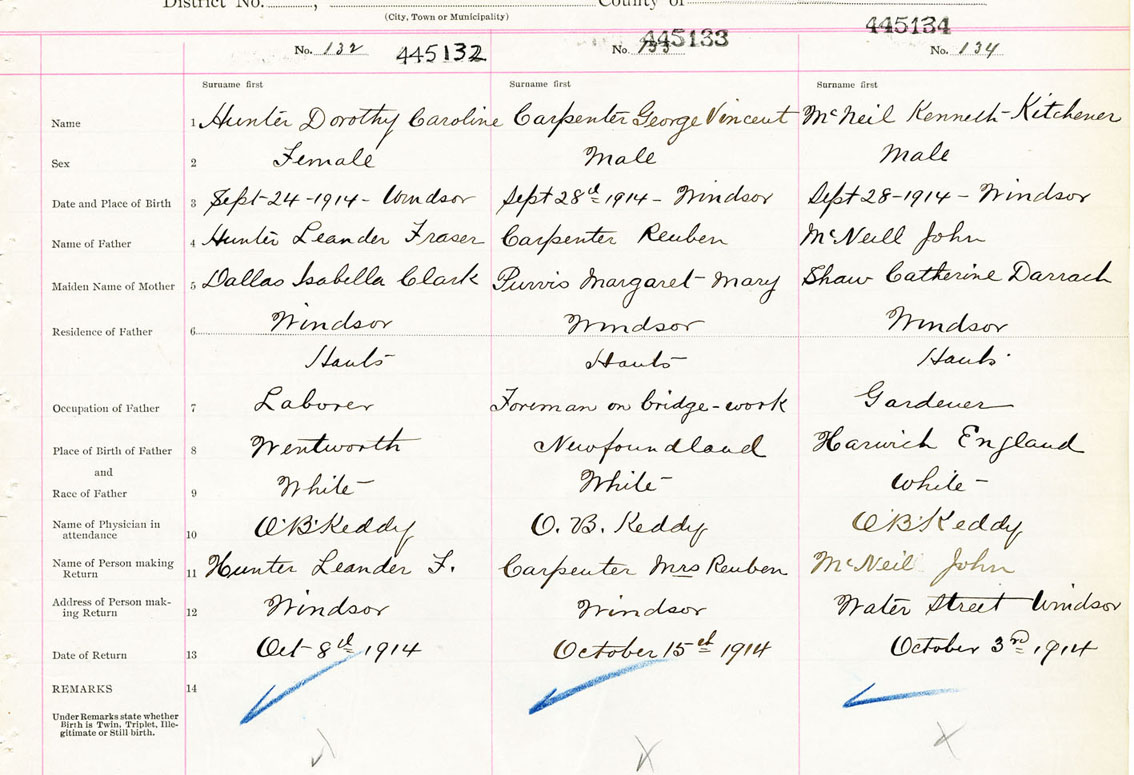 District No. , County of
(City, Town or Municipality)
No. 132 445132 No. 133 445133 No. 134 445134
Surname first Surname first Surname first
Name 1 Hunter Dorothy Caroline Carpenter George Vincent McNeil Kenneth Kitchener
Sex 2 Female Male Male
Date and Place of Birth 3 Sept-24-1914- Windsor Sept 28th 1914- Windsor Sept 28-1914- Windsor
Name of Father 4 Hunter Leander Fraser Carpenter Reuben McNeill John
Maiden Name of Mother 5 Dallas Isabella Clark Purvis Margaret Mary Shaw Catherine Darrach
Residence of Father 6 Windsor Windsor Windsor
Hants Hants Hants
Occupation of Father 7 Laborer Foreman on bridge-work Gardener
Place of Birth of Father 8 Wentworth Newfoundland Harwich England
and
Race of Father 9 White White White
Name of Physician in
attendance 10 O'B'Keddy O. B. Keddy O'B'Keddy
Name of Person making
Return 11 Hunter Leander F. Carpenter Mrs Reuben McNeil John
Address of Person mak-
ing Return 12 Windsor Windsor Water Street Windsor
Date of Return 13 Oct-8th 1914 October 15th 1914 October 3rd 1914
REMARKS 14
Under Remarks state whether
Birth is Twin, Triplet, Ille-
gitimate or Still birth.